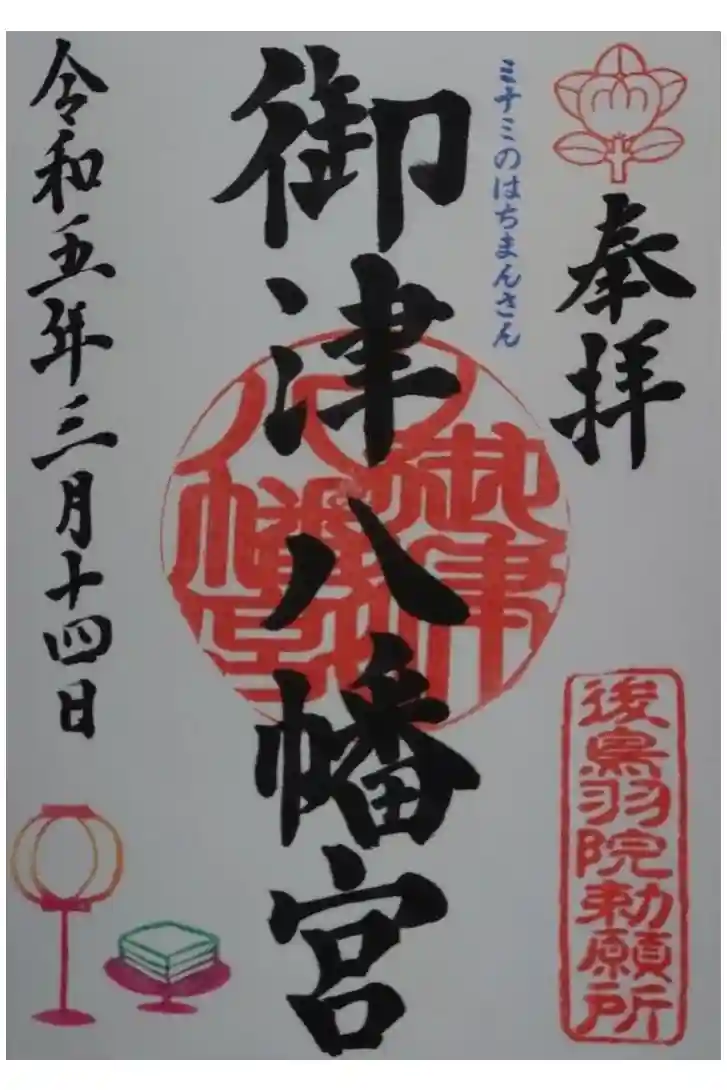 奉拝
後鳥羽院勅願所
ミナミのはちまんさん
御津八幡宮
御津八幡宮
令和五年三月十四日